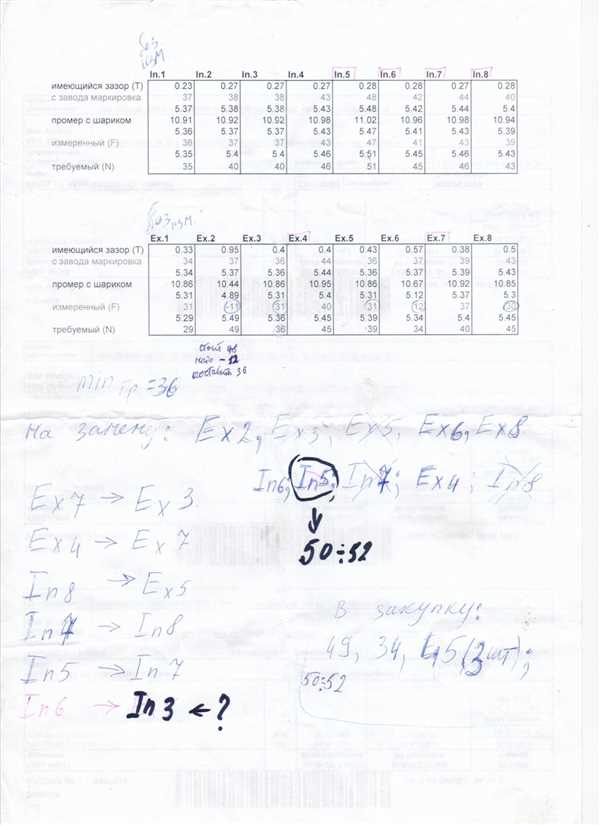 без
изм
In.1 In.2 In.3 In.4 In.5 In.6 In.7 In.8
имеющийся зазор (T) 0.23 0.27 0.27 0.27 0.28 0.28 0.27 0.28
с завода маркировка 37 38 38 43 48 42 44 40
5.37 5.38 5.38 5.43 5.48 5.42 5.44 5.4
промер с шариком 10.91 10.92 10.92 10.98 11.02 10.96 10.98 10.94
5.36 5.37 5.37 5.43 5.47 5.41 5.43 5.39
измеренный (F) 36 37 37 43 47 41 43 39
5.35 5.4 5.4 5.46 5.51 5.45 5.46 5.43
требуемый (N) 35 40 40 46 51 45 46 43
Без изм.
Ex.1 Ex.2 Ex.3 Ex.4 Ex.5 Ex.6 Ex.7 Ex.8
имеющийся зазор (T) 0.33 0.95 0.4 0.4 0.43 0.57 0.38 0.5
с завода маркировка 34 37 36 44 36 37 39 43
5.34 5.37 5.36 5.44 5.36 5.37 5.39 5.43
промер с шариком 10.86 10.44 10.86 10.95 10.86 10.67 10.92 10.85
5.31 4.89 5.31 5.4 5.31 5.12 5.37 5.3
измеренный (F) 31 -11 31 40 31 12 37
5.29 5.49 5.36 5.45 5.39 5.34 5.4 5.45
требуемый (N) 29 49 36 45 39 34 40 45
надо -12
поставить 36
min гр = 36
На замену: Ex2, Ex3, Ex5, Ex6, Ex8
In6; In5; In7; Ex4; In8
50÷52
Ex7 → Ex3.
Ex4 → Ex7
In8 → Ex5
In7 → In8
In5 → In7
In6 → In3 ← ?
В закупку:
49, 34, 45 (3шт);
50÷52